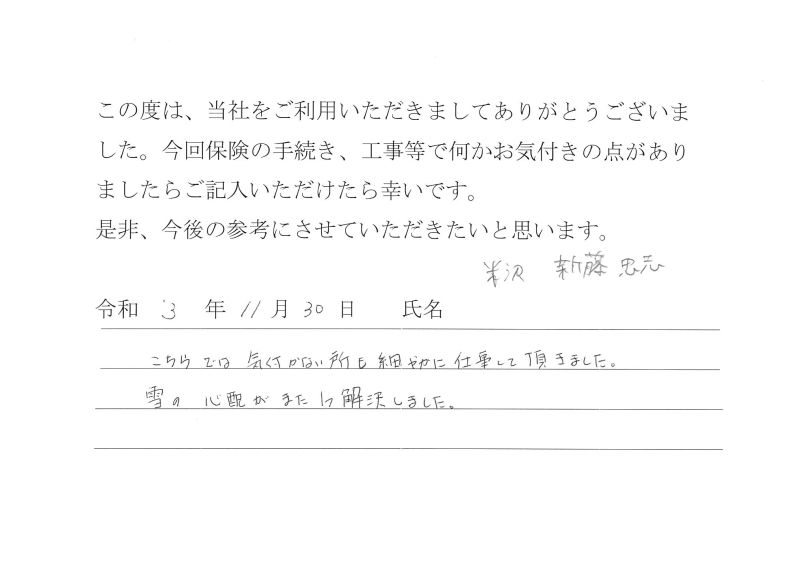 この度は、当社をご利用いただきましてありがとうございま
した。今回保険の手続き、工事等で何かお気付きの点があり
ましたらご記入いただけたら幸いです。
是非、今後の参考にさせていただきたいと思います。
米沢 新藤 忠志
令和 3 年 11 月 30 日 氏名
こちらでは 気付かない所も細やかに仕事して頂きました。
雪の 心配が また1つ解決しました。